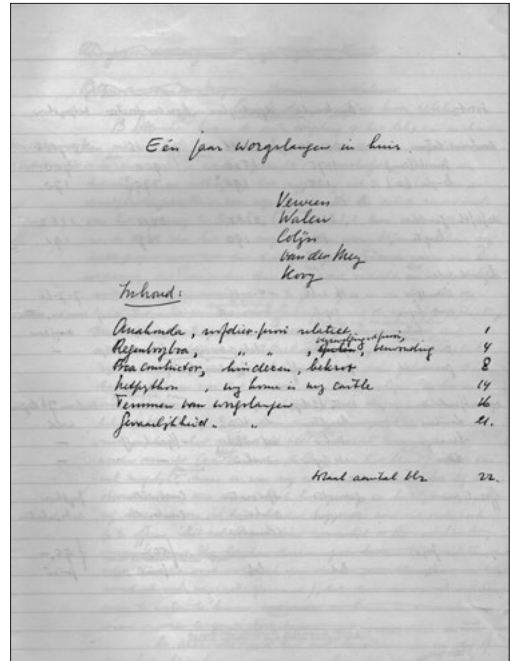 Eén jaar worgslangen in huis.
Verveen
Walen
Colijn
van der Mey
Kooy
Inhoud:
Anakonda, roofdier-prooi relaties. 1
Regenboogboa, " " , bevruchting 4
Boa constrictor, kinderen, 8
Netpython , my home is my castle 14
Temmen van worgslangen 16
Gevaarlijkheid " " 21.
totaal aantal blz 22.